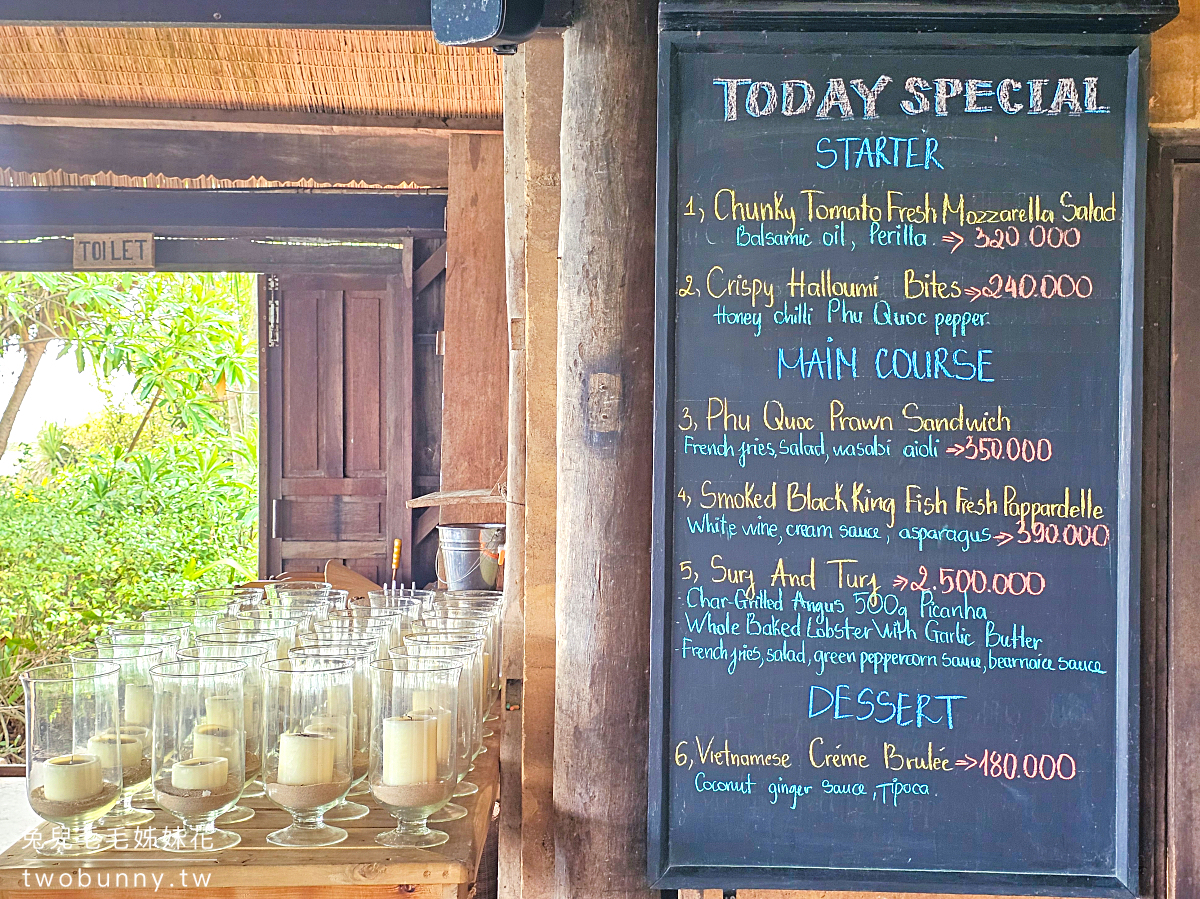 TOILET
TODAY SPECIAL
STARTER
1, Chunky Tomato Fresh Mozzarella Salad
Balsamic oil, Perilla → 320.000
2, Crispy Halloumi Bites → 240.000
Honey chilli Phu Quoc pepper.
MAIN COURSE
3, Phu Quoc Prawn Sandwich
French fries, salad, wasabi aioli → 350.000
4, Smoked Black King Fish Fresh Pappardelle
White wine, cream sauce, asparagus → 390.000
5, Surf And Turf → 2.500.000
- Char-Grilled Angus 500g Picanha
- Whole Baked Lobster With Garlic Butter
- French fries, salad, green peppercorn sauce, bearnaice sauce
DESSERT
6, Vietnamese Créme Brulée → 180.000
Coconut ginger sauce, Tipoca.
兔兒毛毛姊妹花
twobunny.tw